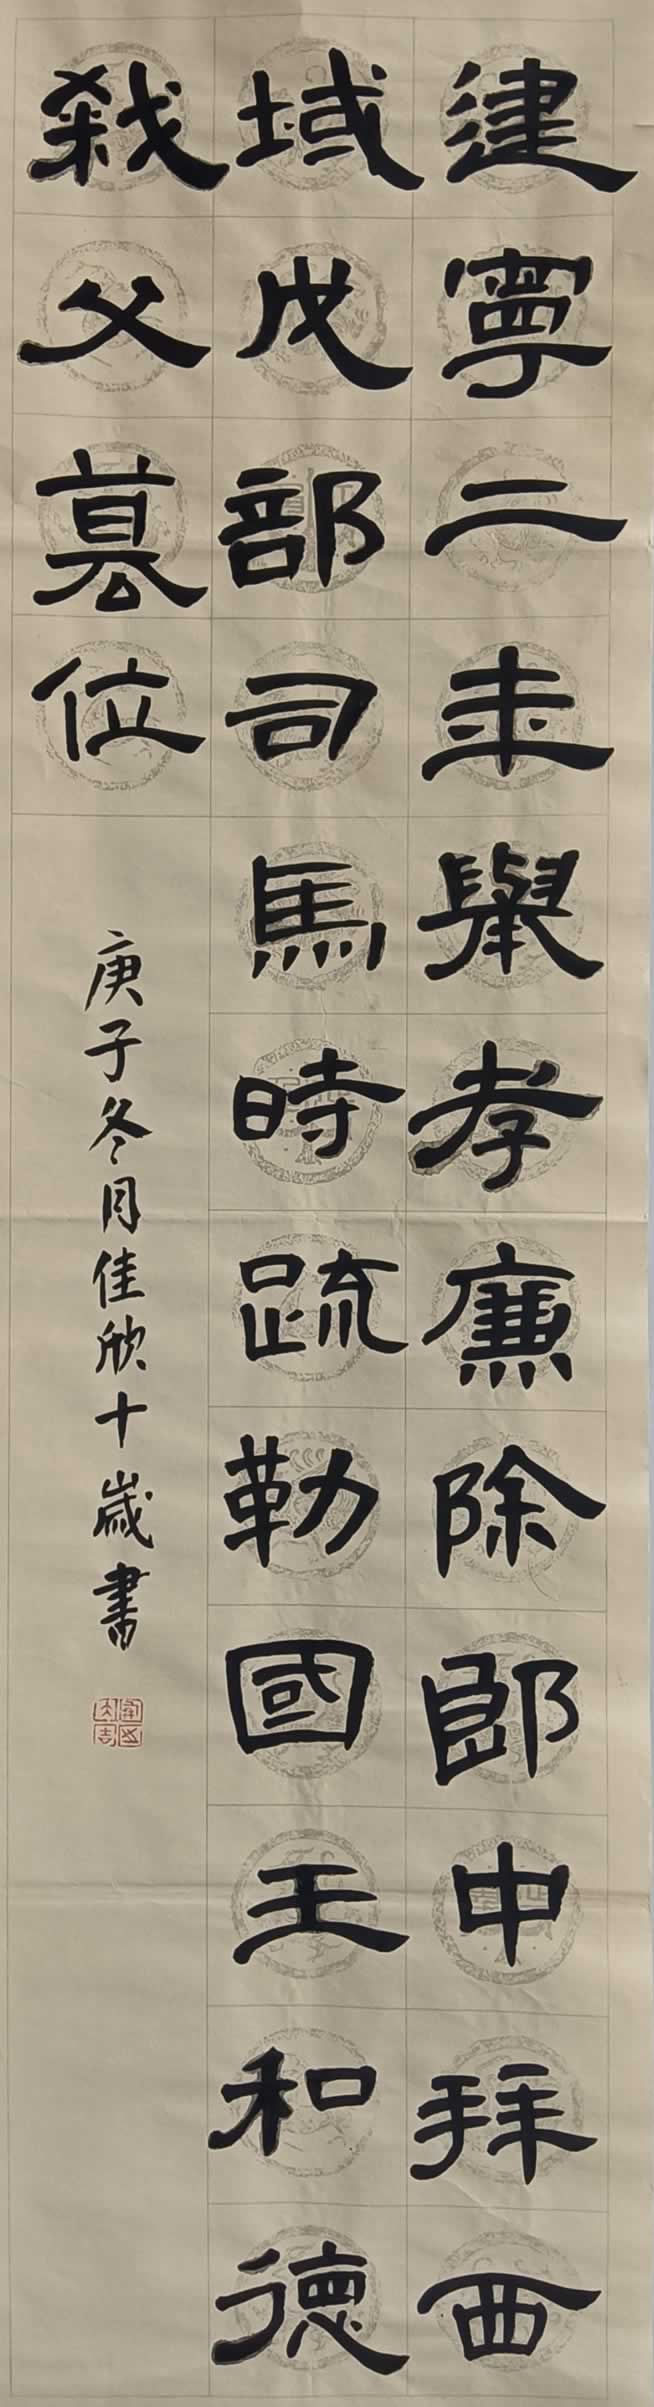 建寧二年舉孝廉除郎中拜西
域戊部司馬時疏勒國王和德
弒父篡位
庚子冬月佳欣十歲書